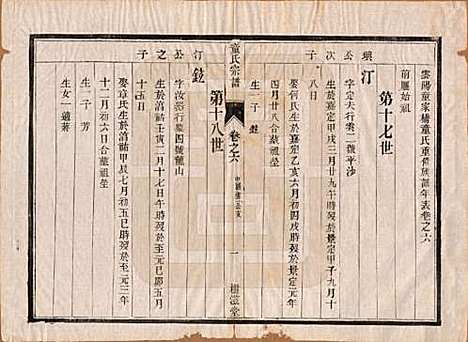 雲陽童家橋童氏重修族譜年表卷之六
前屬始祖
第十七世
珙公次子
汀
字定夫行雲二號平沙
生於嘉定甲戌三月廿九午時歿於景定甲子九月十
八日
娶何氏生於嘉定乙亥六月初四戌時歿於景定元年
四月廿八合葬祖塋
生一子 鉉
童氏宗譜
卷之六
一
樹滋堂
第十八世
汀公之子
鉉
字汝器行業四號龍山
生於淳祐壬寅二月十七日午時歿於至元己卯五月
十五日
娶章氏生於淳祐甲辰七月初五巳時歿於至元二年
十二月初六日合葬祖塋
生一子芳
生女一適著